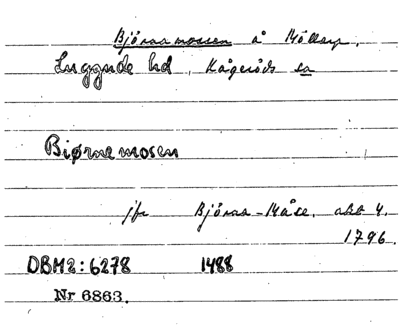 Björnamossen å Möllarp.
Luggude hd, Kågeröds sn
Biørnemosen
jfr Björna-Måse. akt 4.
1796.
DBM2:6278 1488
Nr 6863.